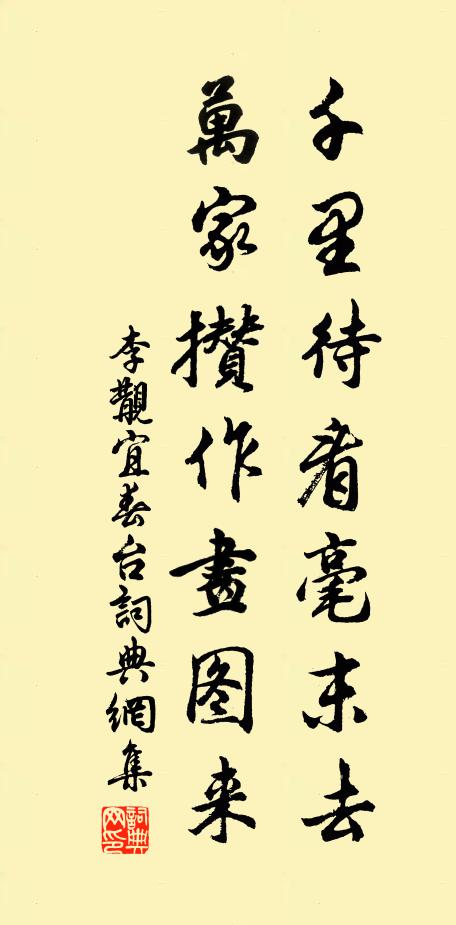 千里待看毫末去
萬家攢作畫图来
李觀宜春台詞典網集
詞典网印